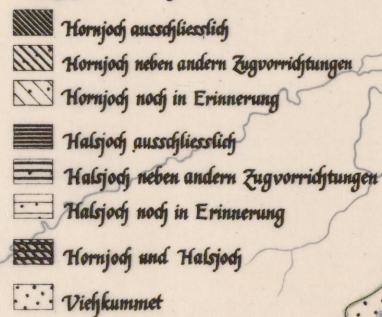 Hornjoch ausschliesslich
Hornjoch neben andern Zugvorrichtungen
Hornjoch noch in Erinnerung
Halsjoch ausschliesslich
Halsjoch neben andern Zugvorrichtungen
Halsjoch noch in Erinnerung
Hornjoch und Halsjoch
Viehkummet